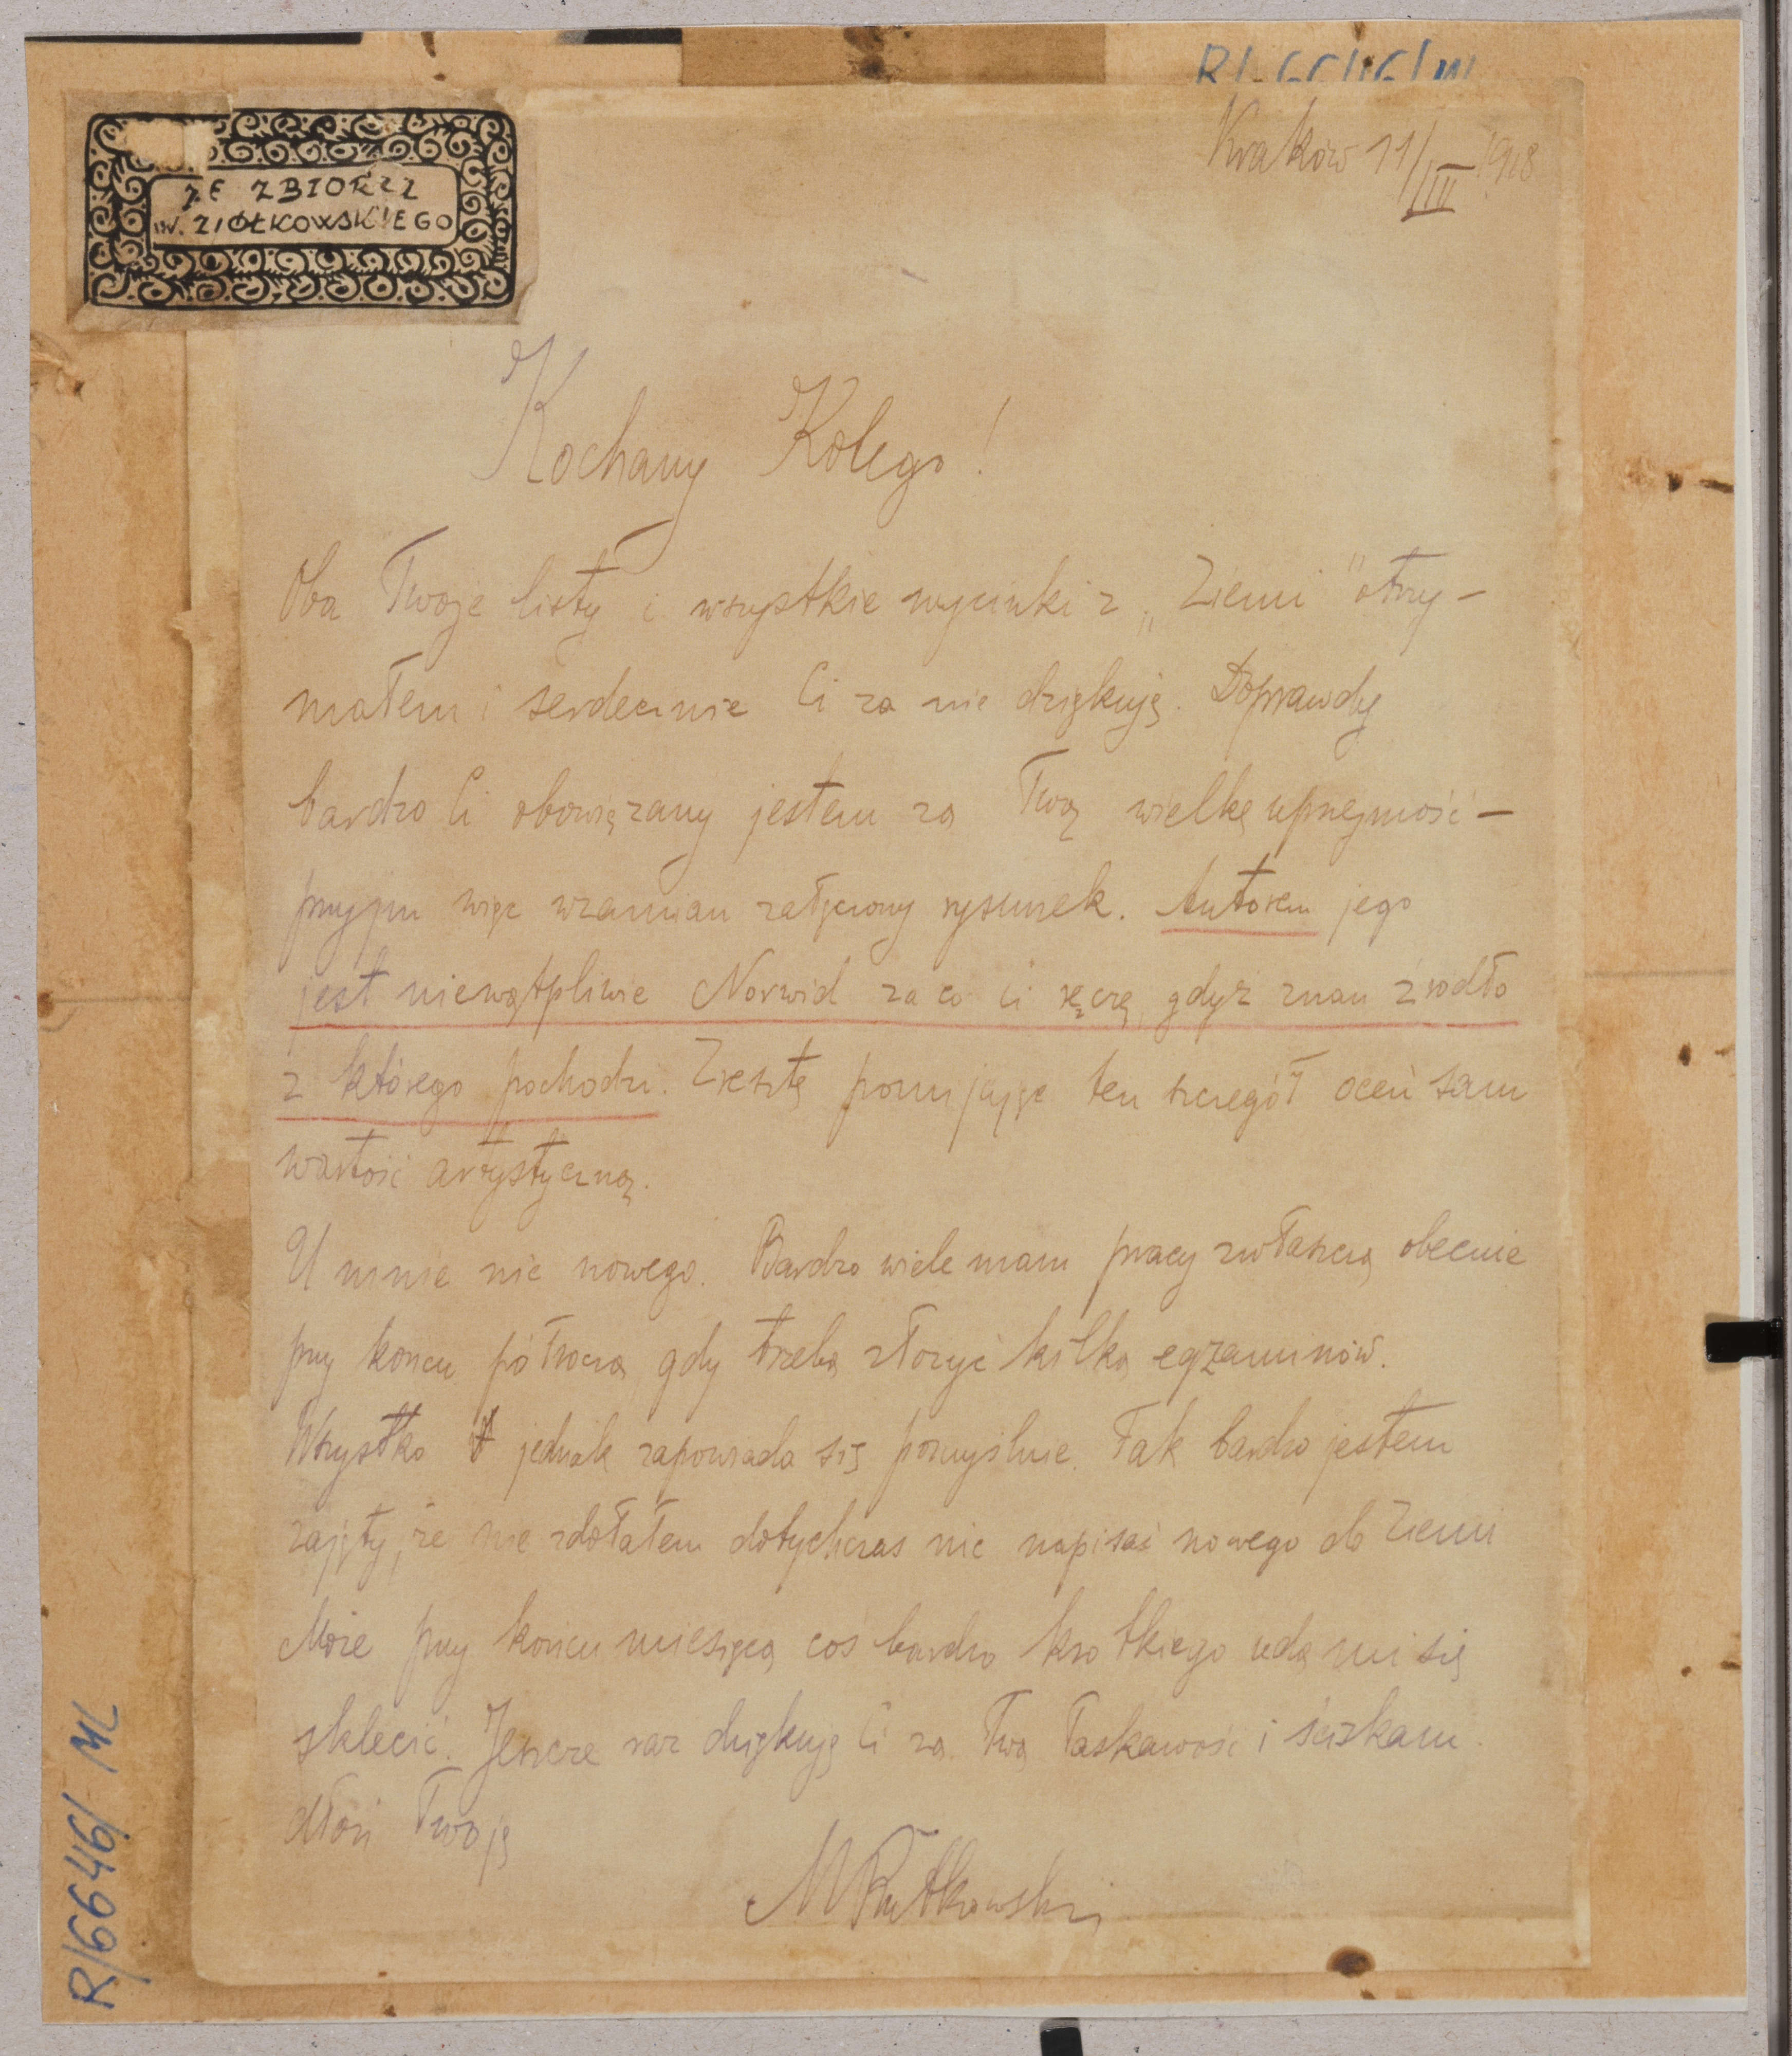 Kraków 11/III 1918
ZE ZBIORÓW
W. ZIÓŁKOWSKIEGO
Kochany Kolego!
Oba Twoje listy i wszystkie wycinki z „Ziemi" otrzy-
małem i serdecznie Ci za nie dziękuję. Doprawdy
bardzo Ci obowiązany jestem za Twą wielką uprzejmość –
przyjm więc wzamian załączony rysunek. Autorem jego
jest niewątpliwie Norwid za co Ci ręczę, gdyż znam źródło
z którego pochodzi. Zresztą pomijając ten szczegół oceń sam
wartość artystyczną.
U mnie nic nowego. Bardzo wiele mam pracy zwłaszcza obecnie
przy końcu półrocza, gdy trzeba złożyć kilka egzaminów.
Wszystko jednak zapowiada się pomyślnie. Tak bardzo jestem
zajęty, że nie zdołałem dotychczas nic napisać nowego do Ziemi
Może przy końcu miesiąca coś bardzo krótkiego uda mi się
sklecić. Jeszcze raz dziękuję Ci za Twą łaskawość i ściskam
dłoń Twoją
MRutkowski
R/6646/ ML